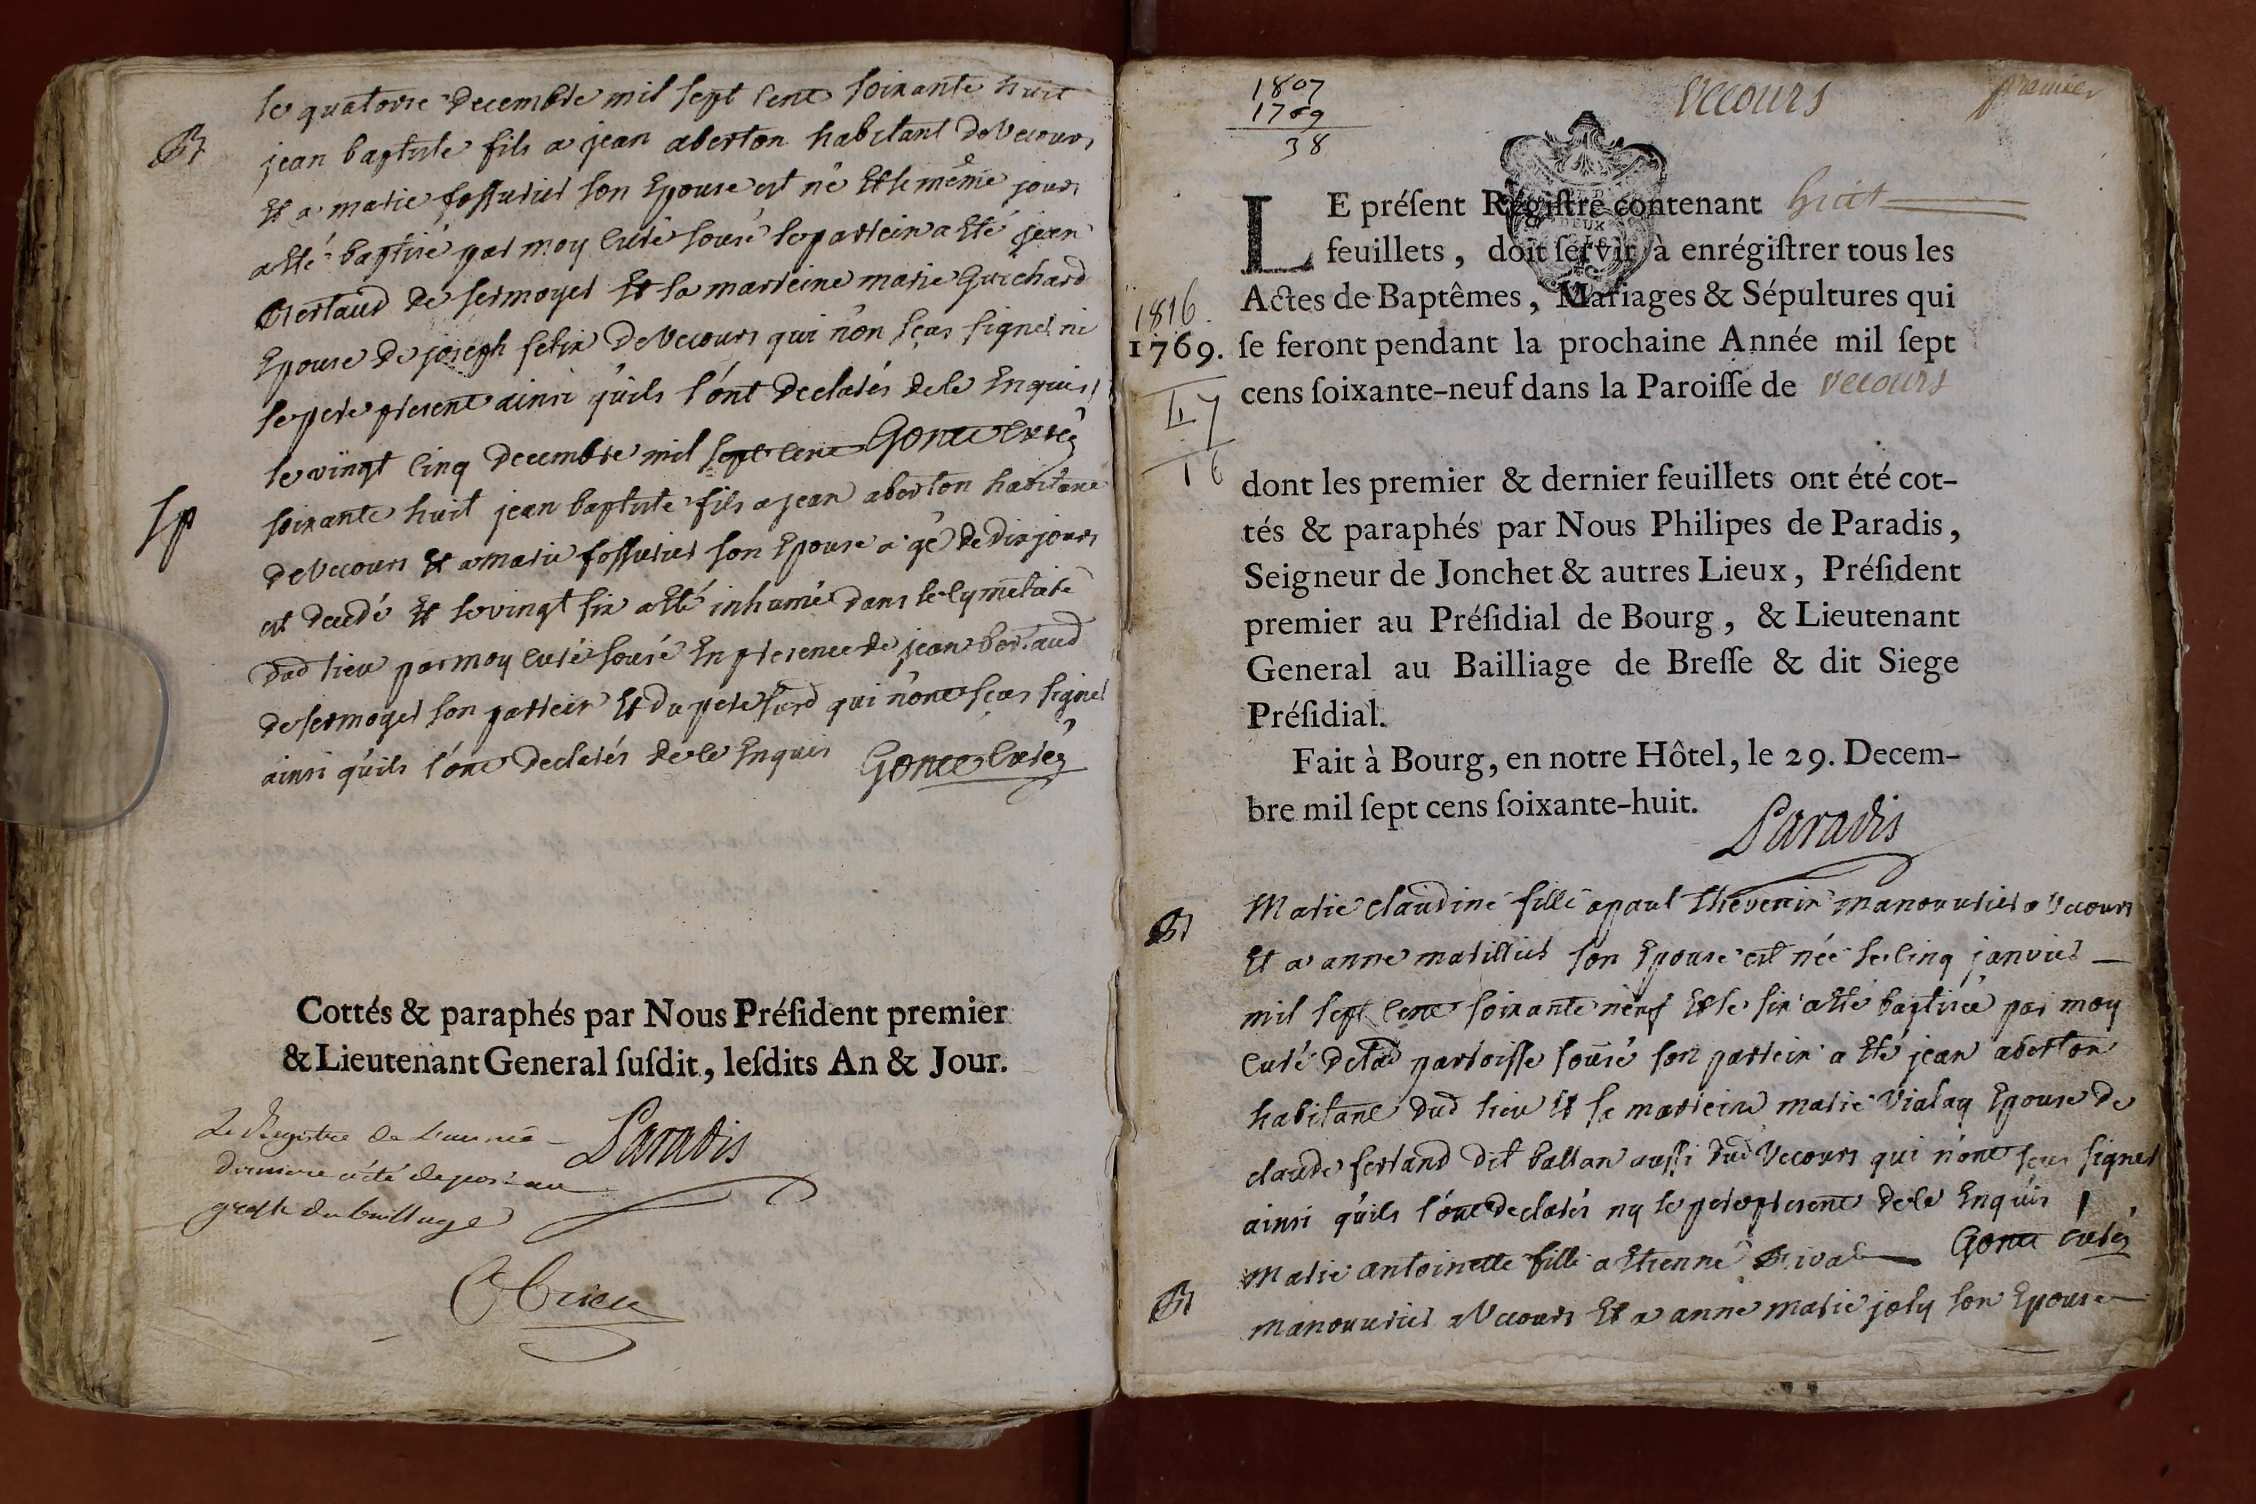 le quatorse decembre mil sept cent soixante huit
Bt jean baptiste fils a jean aberton habitant de Vecours
et a marie fossurier son Epouse est né et le même jour
a êté baptisé par moy curé sousé le parrein a eté jean
Bertaud de sermoyer et la marreine marie Guichard
Epouse de joseph felix de Vecours qui n'on sçus signer ni
le pere present ainsi qu'ils l'ont declarés de le Enquis
Gonce curé
le vingt cinq decembre mil sept cent
Sp soixante huit jean baptiste fils a jean aberton habitant
de Vecours et a marie fossurier son Epouse agé de dix jours
est decedé et le vingt six a eté inhumé dans le cymetaire
dud lieu par moy curé sousé En presence de jean bertaud
de sermoyer son parrein et du pere susd qui n'ont sçus signer
ainsi qu'ils l'ont declarés de le Enquis Gonce curé
Cottés & paraphés par Nous Préſident premier
& Lieutenant General ſuſdit, leſdits An & Jour.
Paradis
Le Registre de l'année
derniere a été deposé au
greffe du bailliage
1807
1769
38
Vecours
premier
LE préſent Régiſtre contenant huit
feuillets, doit ſervir à enrégiſtrer tous les
Actes de Baptêmes, Mariages & Sépultures qui
1816.
1769. ſe feront pendant la prochaine Année mil ſept
cens ſoixante-neuf dans la Paroiſſe de Vecours
dont les premier & dernier feuillets ont été cot-
tés & paraphés par Nous Philipes de Paradis,
Seigneur de Jonchet & autres Lieux, Préſident
premier au Préſidial de Bourg, & Lieutenant
General au Bailliage de Breſſe & dit Siege
Préſidial.
Fait à Bourg, en notre Hôtel, le 29. Decem-
bre mil ſept cens ſoixante-huit.
Paradis
Bt Marie claudine fille a paul thevenin manouvrier a Vecours
et a anne marillier son Epouse est née le cinq janvier
mil sept cent soixante neuf et le six a eté baptisée par moy
curé de lad parroisse sousé son parrein a eté jean aberton
habitant dud lieu et la marreine marie Vialay Epouse de
claude ferland dit ballan aussi dud Vecours qui n'ont sçus signer
ainsi qu'ils l'ont declarés ny le pere present de le Enquis
Gonce curé
Bt Marie antoinette fille a Etienne
manouvrier a Vecours et a anne marie joly son Epouse